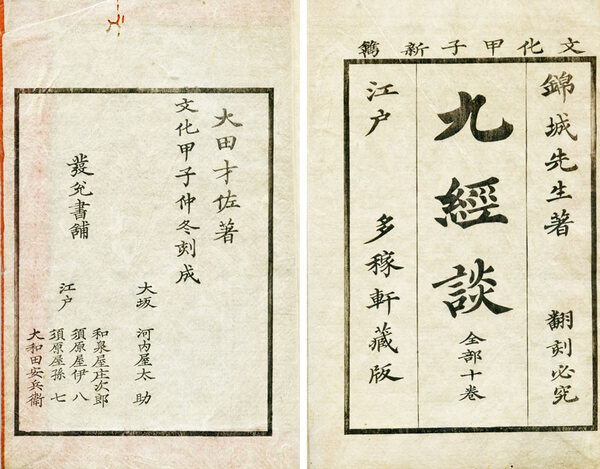 文化甲子新鐫
錦城先生著
翻刻必究
九經談
全部十卷
江户
多稼軒藏版
大田才佐著
文化甲子仲冬刻成
發兌書舖
大坂
河内屋太助
江户
和泉屋庄次郎
須原屋伊八
須原屋孫七
大和田安兵衛